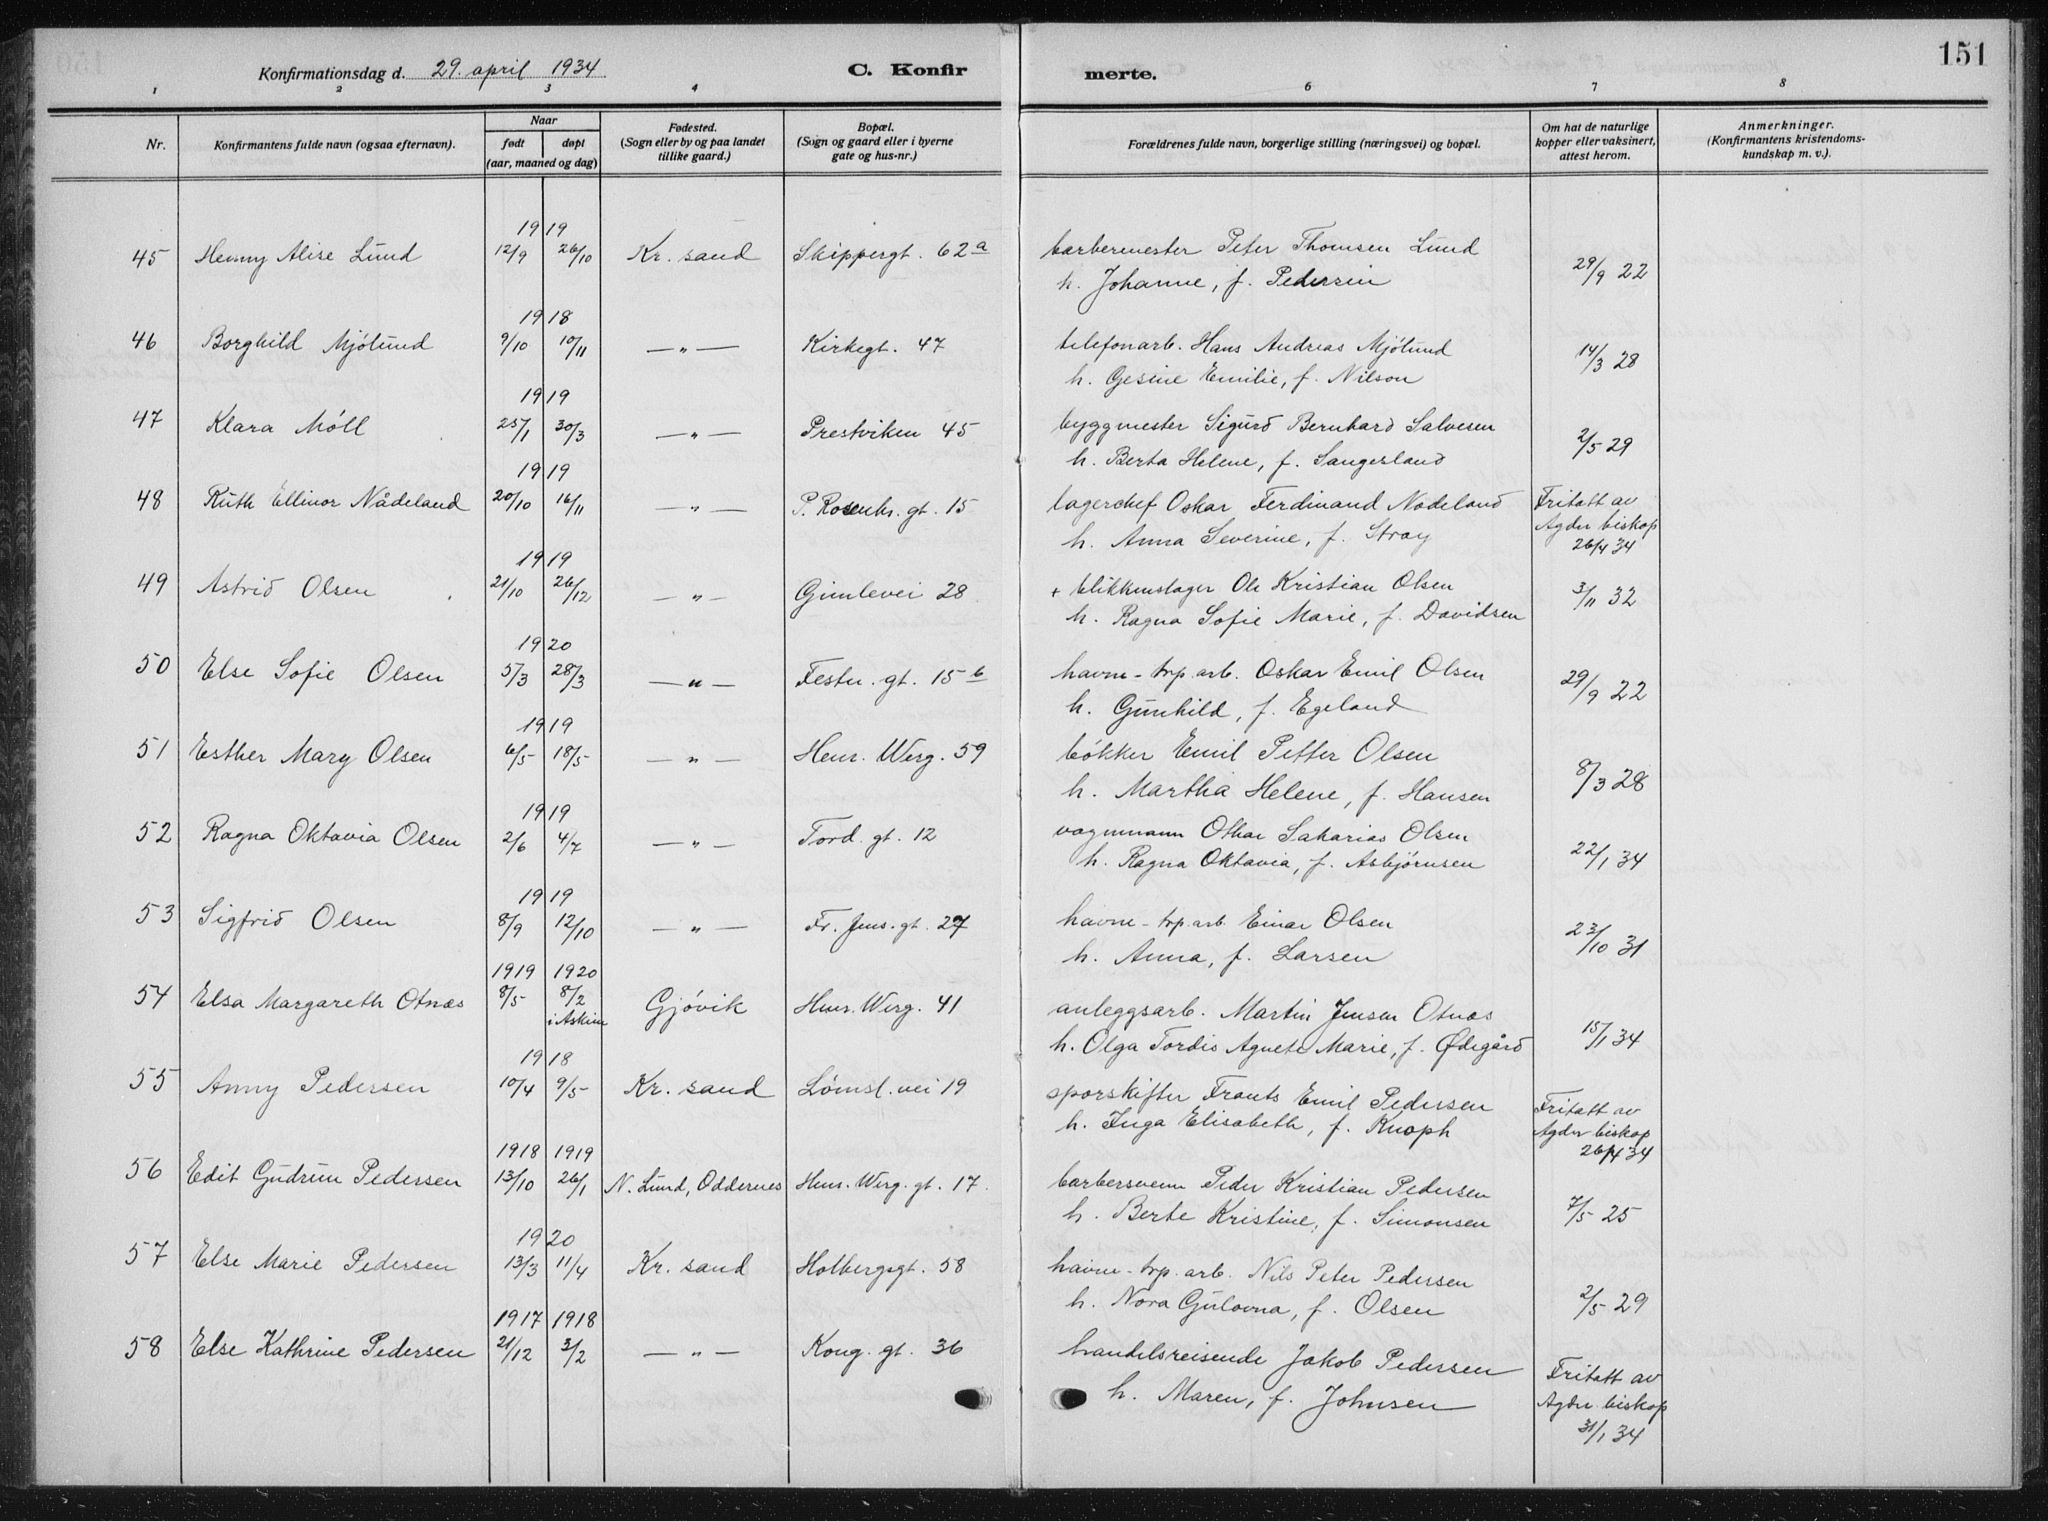 151
Konfirmationsdag d. 29. april 1934 C. Konfir merte.
1 2 3 4 6 7 8
Nr. Konfirmantens fulde navn (ogsaa efternavn). Naar født døpt (aar, maaned og dag) Fødested. (Sogn eller by og paa landet tillike gaard.) Bopæl. (Sogn og gaard eller i byerne gate og hus-nr.) Forældrenes fulde navn, borgerlige stilling (næringsvei) og bopæl. Om hat de naturlige kopper eller vaksinert, attest herom. Anmerkninger. (Konfirmantens kristendoms- kundskap m. v.).
1919
45 Henny Alise Lund 12/9 26/10 Kr. sand Skippergt. 62a barbermester Peter Thomsen Lund
h. Johanne, f. Pedersen 29/9 22
1918
46 Borghild Mjölund 9/10 10/11 —„— Kirkegt. 47 telefonarb. Hans Andreas Mjölund
h. Gesine Emilie, f. Nilson 14/3 28
1919
47 Klara Móll 25/1 30/3 —„— Prestviken 45 byggmester Sigurd Bernhard Salvesen
h. Berta Helene, f. Sangesland 2/5 29
1919
48 Ruth Ellinor Nådeland 20/10 16/11 —„— P. Rosenkr. gt. 15 lagerchef Oskar Ferdinand Nodeland Fritatt av
h. Anna Severine, f. Stray Agder biskop
26/4 34
1919
49 Astrid Olsen 21/10 26/12 —„— Gimlevei 28 + blikkenslager Ole Kristian Olsen
h. Ragna Sofie Marie, f. Davidsen 3/11 32
1920
50 Else Sofie Olsen 5/3 28/3 —„— Festn. gt. 15b havne-trp. arb. Oskar Emil Olsen
h. Gunhild, f. Egeland 29/9 22
1919
51 Esther Mary Olsen 6/5 18/5 —„— Henr. Werg. 59 bökker Emil Petter Olsen
h. Martha Helene, f. Hansen 8/3 28
1919
52 Ragna Oktavia Olsen 2/6 4/7 —„— Tord. gt. 12 vognmann Othar Sakarias Olsen
h. Ragna Oktavia, f. Asbjörnsen 22/1 34
1919
53 Sigfrid Olsen 8/9 12/10 —„— Fr. Jens. gt. 27 havne-trp. arb. Einar Olsen
h. Anna, f. Larsen 23/10 31
1919 1920
54 Elsa Margareth Otnæs 8/5 8/2 Gjövik Henr. Werg. 41 anleggsarb. Martin Jensen Otnæs
i Askim h. Olga Tordis Agnete Marie, f. Ødegård 15/1 34
1918
55 Anny Pedersen 10/4 9/5 Kr. sand Lømsl. vei 19 sporskifter Frants Emil Pedersen Fritatt av
h. Inga Elisabeth, f. Knoph Agder biskop
26/4 34
1918 1919
56 Edit Gudrun Pedersen 13/10 26/1 N. Lund, Oddernes Henr. Werg. gt. 17. barbersvenn Peder Kristian Pedersen
h. Berte Kristine, f. Simonsen 7/5 25
1920
57 Else Marie Pedersen 13/3 11/4 Kr. sand Holbergsgt. 58 havne-trp. arb. Nils Peter Pedersen
h. Nora Gulovna, f. Olsen 2/5 29
1917 1918
58 Else Kathrine Pedersen 21/12 3/2 —„— Kong. gt. 36 handelsreisende Jakob Pedersen Fritatt av
h. Maren, f. Johnsen Agder biskop
31/1 34